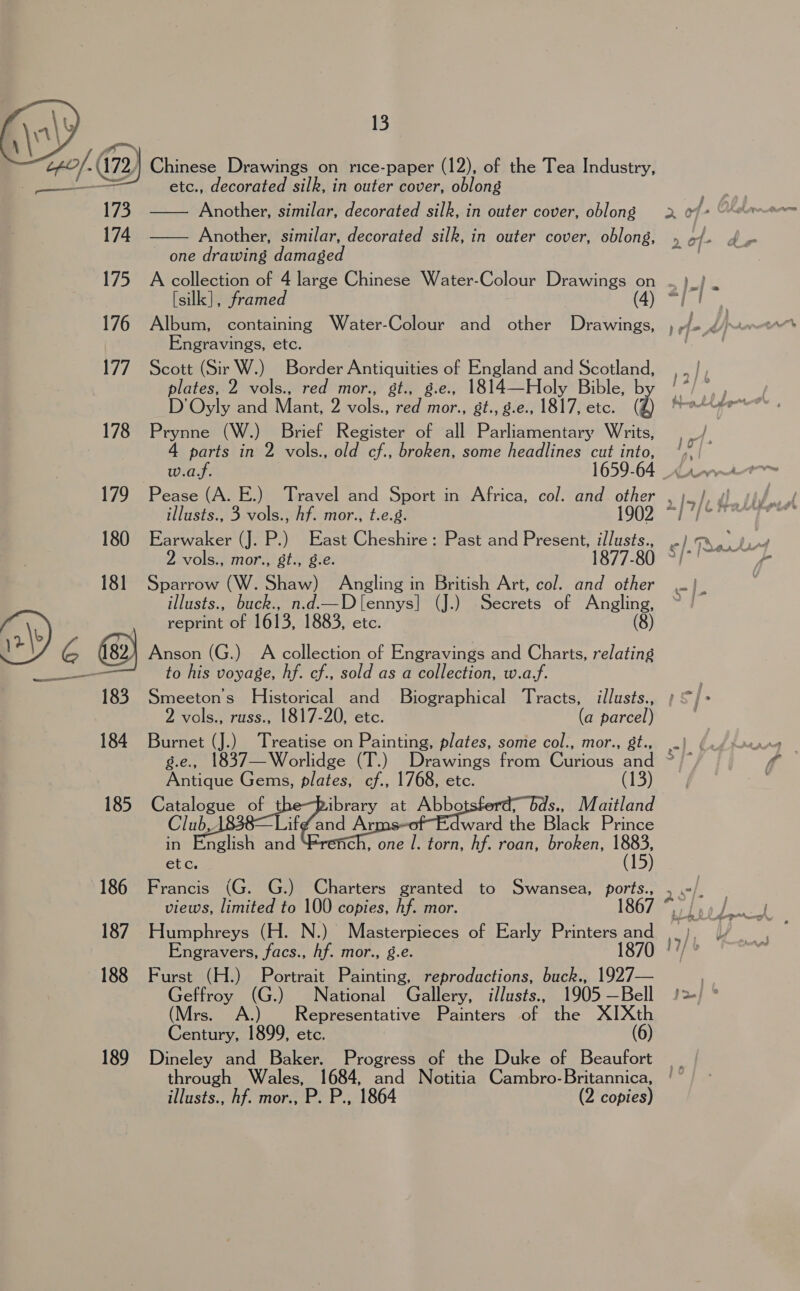 13
172 Chinese Drawings on rice-paper (12), of the Tea Industry,
etc., decorated silk, in outer cover, oblong
173 —— Another, similar, decorated silk, in outer cover, oblong
174 —— Another, similar, decorated silk, in outer cover, oblong,
one drawing damaged
175 A collection of 4 large Chinese Water-Colour Drawings on
[silk], framed (4)
176 Album, containing Water-Colour and other Drawings,
Engravings, etc.
177 Scott (Sir W.) Border Antiquities of England and Scotland,
plates, 2 vols., red mor., gt., g.e., 1814—Holy Bible, by
D'Oyly and Mant, 2 vols., red mor., gt., g.e., 1817, etc.
178 Prynne (W.) Brief Register of all Parliamentary Writs,
4 parts in 2 vols., old cf., broken, some headlines cut into,
w.a.f. 1659-64
179 Pease (A. E.) Travel and Sport in Africa, col. and other
illusts., 3 vols., hf. mor., t.e.g. 1902
180 Earwaker (J. P.) East Cheshire: Past and Present, illusts.,
2 vols., mor., gt., g.e. 1877-80
181 Sparrow (W. Shaw) Angling in British Art, col. and other
illusts., buck., n.d.—D[ennys] (J.) Secrets of Angling,
reprint of 1613, 1883, etc. (8)
182 Anson (G.) A collection of Engravings and Charts, relating
to his voyage, hf. cf., sold as a collection, w.a.f.
183 Smeeton's Historical and Biographical Tracts, illusts.,
2 vols., russ., 1817-20, etc. (a parcel)
184 Burnet (J.) Treatise on Painting, plates, some col., mor., gt.,
g.e., 1837—Worlidge (T.) Drawings from Curious and
Antique Gems, plates, cf., 1768, etc. (13)
185 Catalogue of the Library at Abbotsford, bds., Maitland
Club, 1838—Life and Arms of Edward the Black Prince
in English and French, one l. torn, hf. roan, broken, 1883,
etc. (15)
186 Francis (G. G.) Charters granted to Swansea, ports.,
views, limited to 100 copies, hf. mor. 1867
187 Humphreys (H. N.) Masterpieces of Early Printers and
Engravers, facs., hf. mor., g.e. 1870
188 Furst (H.) Portrait Painting, reproductions, buck., 1927—
Geffroy (G.) National Gallery, illusts., 1905—Bell
(Mrs. A.) Representative Painters of the XIXth
Century, 1899, etc. (6)
189 Dineley and Baker. Progress of the Duke of Beaufort
through Wales, 1684, and Notitia Cambro-Britannica,
illusts., hf. mor., P. P., 1864 (2 copies)